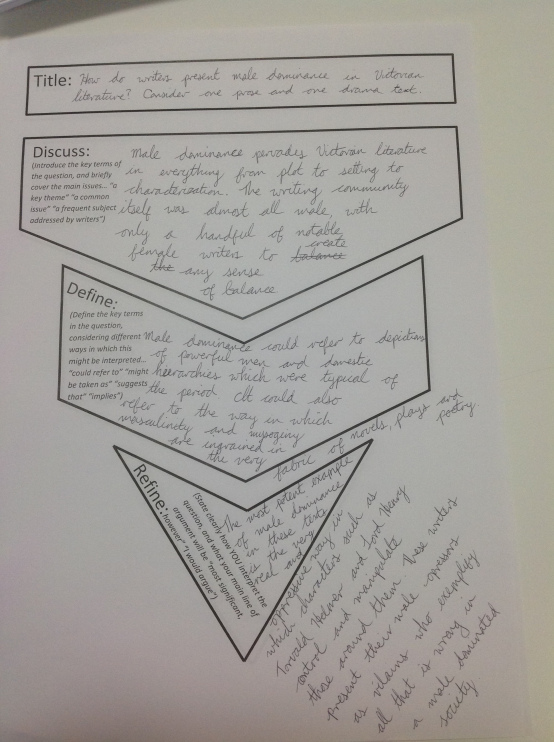 Title: How do writers present male dominance in Victorian
literature? Consider one prose and one drama text.
Discuss:
(Introduce the key terms of
the question, and briefly
cover the main issues... "a
key theme" "a common
issue" "a frequent subject
addressed by writers")
Male dominance pervades Victorian literature
in everything from plot to setting to
characterisation. The writing community
itself was almost all male, with
only a handful of notable,
female writers to balance create
the any sense
of balance
Define:
(Define the key terms
in the question,
considering different
ways in which this
might be interpreted..
"could refer to" "might
be taken as" "suggests
that" "implies")
Male dominance could refer to depictions
of powerful men and domestic
heirarchies which were typical of
the period. It could also
refer to the way in which
masculinity and mysogyny
are ingrained in
the very
fabric of novels, plays and
poetry
Refine:
(State clearly how YOU interpret the
question, and what your main line of
argument will be "most significant,
however" "I would argue")
The most potent example
of male dominance
in these texts
is the very
real and
oppressive way in
which characters such as
Torvald Helmer and Lord Henry
control and manipulate
those around them. These writers
present their male oppressors
as villains who exemplify
all that is wrong in
a male dominated
society.